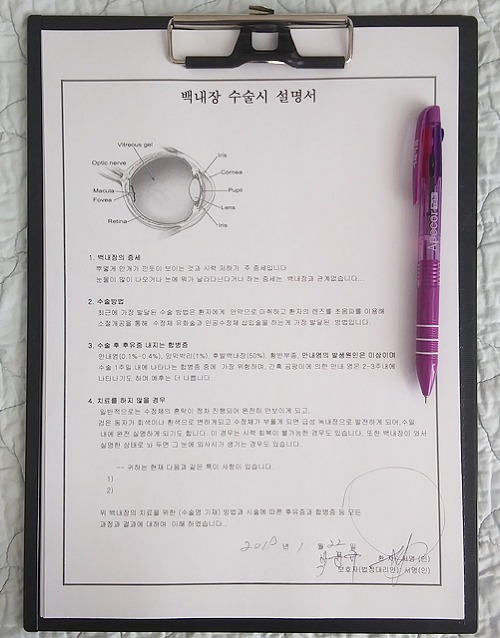 백내장 수술시 설명서
Vitreous gel
Iris
Optic nerve
Cornea
Macula
Pupil
Fovea
Lens
Retina
Iris
1. 백내장의 증세
뿌옇게 안개가 낀듯이 보이는 것과 시력 저하가 주 증세입니다
눈물이 많이 나오거나 눈에 뭐가 날라다닌다거나 하는 증세는 백내장과 관계없습니다...
2. 수술방법
최근에 가장 발달된 수술 방법은 환자에게 안약으로 마취하고 환자의 렌즈를 초음파를 이용해
소절개공을 통해 수정체 유화술과 인공수정체 삽입술을 하는게 가장 발달된 방법입니다.
3. 수술 후 후유증 내지는 합병증
안내염(0.1%-0.4%), 망막박리(1%), 후발백내장(50%), 황반부종, 안내염의 발생원인은 미상이며
수술 1주일 내에 나타나는 합병증 중에 가장 위험하며, 간혹 곰팡이에 의한 안내 염은 2-3주내에
나타나기도 하며 예후는 더 나쁩니다.
4. 치료를 하지 않을 경우
일반적으로는 수정체의 혼탁이 점차 진행되어 완전히 안보이게 되고,
검은 동자가 회색이나 흰색으로 변하게되고 수정체가 부풀게 되면 급성 녹내장으로 발전하게 되어,수일
내에 완전 실명하게 되기도 합니다. 이 경우는 시력 회복이 불가능한 경우도 있습니다. 또한 백내장이 와서
실명한 상태로 놔 두면 그 눈에 외사시가 생기는 경우도 있습니다.
-- 귀하는 현재 다음과 같은 특이 사항이 있습니다.
1)
2)
위 백내장의 치료을 위한 (수술명 기재) 방법과 시술에 따른 후유증과 합병증 등 모든
과정과 결과에 대하여 이해 하였습니다...
년 1 월 22 일
환 자 서명 (인)
보호자(법정대리인) 서명(인)
Apecor